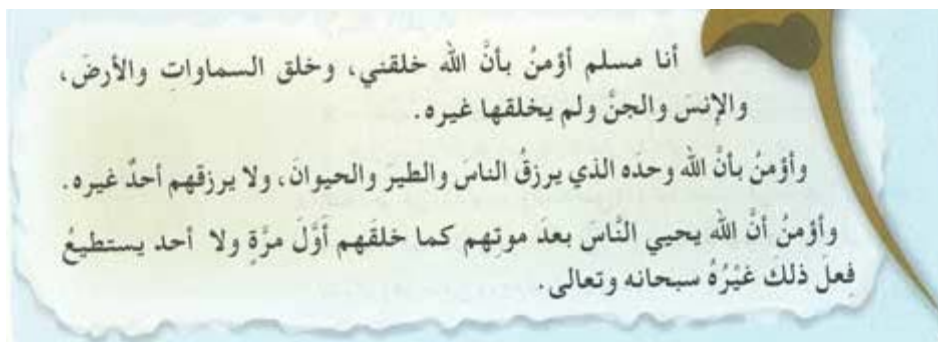 أنا مسلم أؤمنُ بأنَّ الله خلقني، وخلق السماواتِ والأرضَ،
والإنسَ والجنَّ ولم يخلقها غيره.
وأؤمنُ بأنَّ الله وحدُه الذي يرزقُ الناسَ والطيرَ والحيوانَ، ولا يرزقهم أحدٌ غيره.
وأؤمنُ أنَّ الله يحيي النَّاسَ بعدَ موتِهم كما خلقَهم أوَّلَ مرَّةٍ ولا أحد يستطيعُ
فِعلَ ذلكَ غَيْرُهُ سبحانه وتعالى.